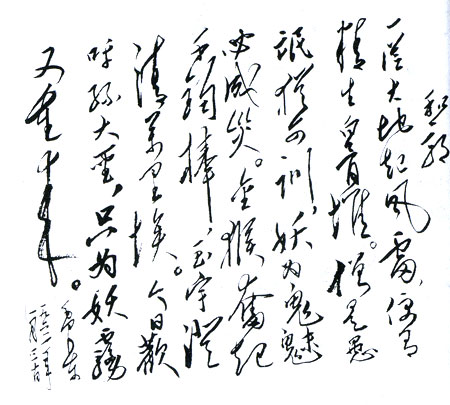 和郭
一从大地起风雷,便有
精生白骨堆。僧是愚
氓犹可训,妖为鬼魅
必成灾。金猴奋起
千钧棒,玉宇澄
清万里埃。今日欢
呼孙大圣,只为妖雾
又重来。
毛泽东
一九六一年